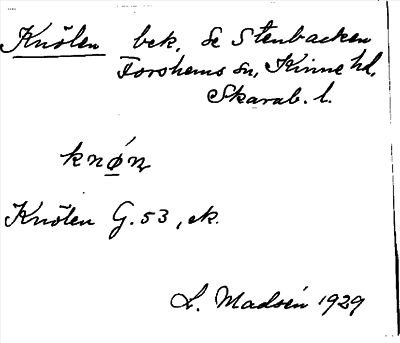 Knölen bek. Se Stenbacken
Forshems sn, Kinne hd,
Skarab. l.
knǿ̱n
Knölen G. 53, ek.
L. Madsén 1929